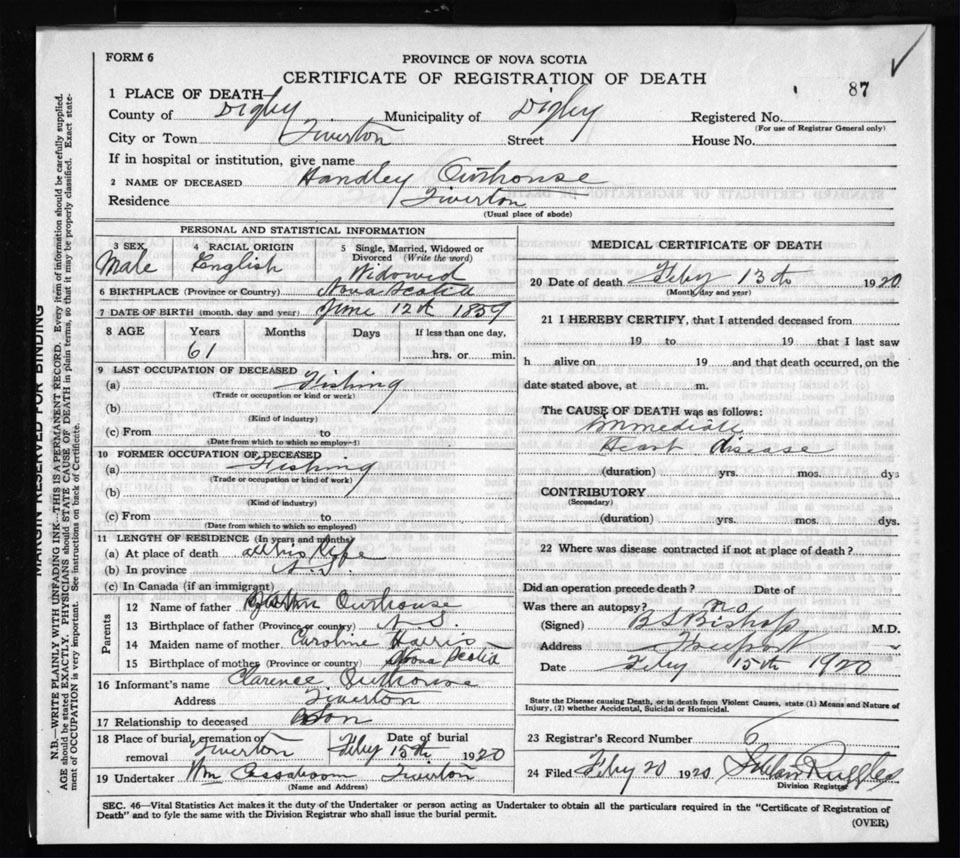 FORM 6
PROVINCE OF NOVA SCOTIA
CERTIFICATE OF REGISTRATION OF DEATH
87
1 PLACE OF DEATH
County of Digby Municipality of Digby Registered No.
(For use of Registrar General only)
City or Town Tiverton Street House No.
If in hospital or institution, give name
2 NAME OF DECEASED Handley Outhouse
Residence Tiverton
(Usual place of abode)
PERSONAL AND STATISTICAL INFORMATION
3 SEX 4 RACIAL ORIGIN 5 Single, Married, Widowed or Divorced (Write the word)
Male English Widowed
6 BIRTHPLACE (Province or Country) Nova Scotia
7 DATE OF BIRTH (month, day and year) June 12th 1859
8 AGE Years Months Days If less than one day,
61 hrs. or min.
9 LAST OCCUPATION OF DECEASED
(a) Fishing
(Trade or occupation or kind or work)
(b)
(Kind of industry)
(c) From to
(Date from which to which so employed)
10 FORMER OCCUPATION OF DECEASED
(a) Fishing
(Trade or occupation or kind of work)
(b)
(Kind of industry)
(c) From to
(Date from which to which so employed)
11 LENGTH OF RESIDENCE (In years and months)
(a) At place of death all his life
(b) In province N.S.
(c) In Canada (if an immigrant)
Parents
12 Name of father Outhouse
13 Birthplace of father (Province or country) N S.
14 Maiden name of mother Caroline Harris
15 Birthplace of mother (Province or country) Nova Scotia
16 Informant's name Clarence Outhouse
Address Tiverton
17 Relationship to deceased Son
18 Place of burial, cremation or removal Tiverton Date of burial Feby 15th 1920
19 Undertaker Wm Cossaboom Tiverton
(Name and Address)
MEDICAL CERTIFICATE OF DEATH
20 Date of death Feby 13th 1920
(Month, day and year)
21 I HEREBY CERTIFY, that I attended deceased from
19 to 19 that I last saw
h alive on 19 and that death occurred, on the
date stated above, at m.
The CAUSE OF DEATH was as follows:
Immediate
Heart disease
(duration) yrs. mos. dys
CONTRIBUTORY
(Secondary)
(duration) yrs. mos. dys.
22 Where was disease contracted if not at place of death?
Did an operation precede death? Date of
Was there an autopsy? no
(Signed) B S Bishop M.D.
Address Freeport
Date Feby 15th 1920
State the Disease causing Death, or in death from Violent Causes, state (1) Means and Nature of
Injury, (2) whether Accidental, Suicidal or Homicidal.
23 Registrar's Record Number 6
24 Filed Feby 20 1920 Ruggles
Division Registrar
SEC. 46—Vital Statistics Act makes it the duty of the Undertaker or person acting as Undertaker to obtain all the particulars required in the "Certificate of Registration of
Death" and to fyle the same with the Division Registrar who shall issue the burial permit.
(OVER)
MARGIN RESERVED FOR BINDING
N.B.—WRITE PLAINLY WITH UNFADING INK—THIS IS A PERMANENT RECORD. Every item of information should be carefully supplied.
AGE should be stated EXACTLY. PHYSICIANS should STATE CAUSE OF DEATH in plain terms, so that it may be properly classified. Exact state-
ment of OCCUPATION is very important. See instructions on back of Certificate.